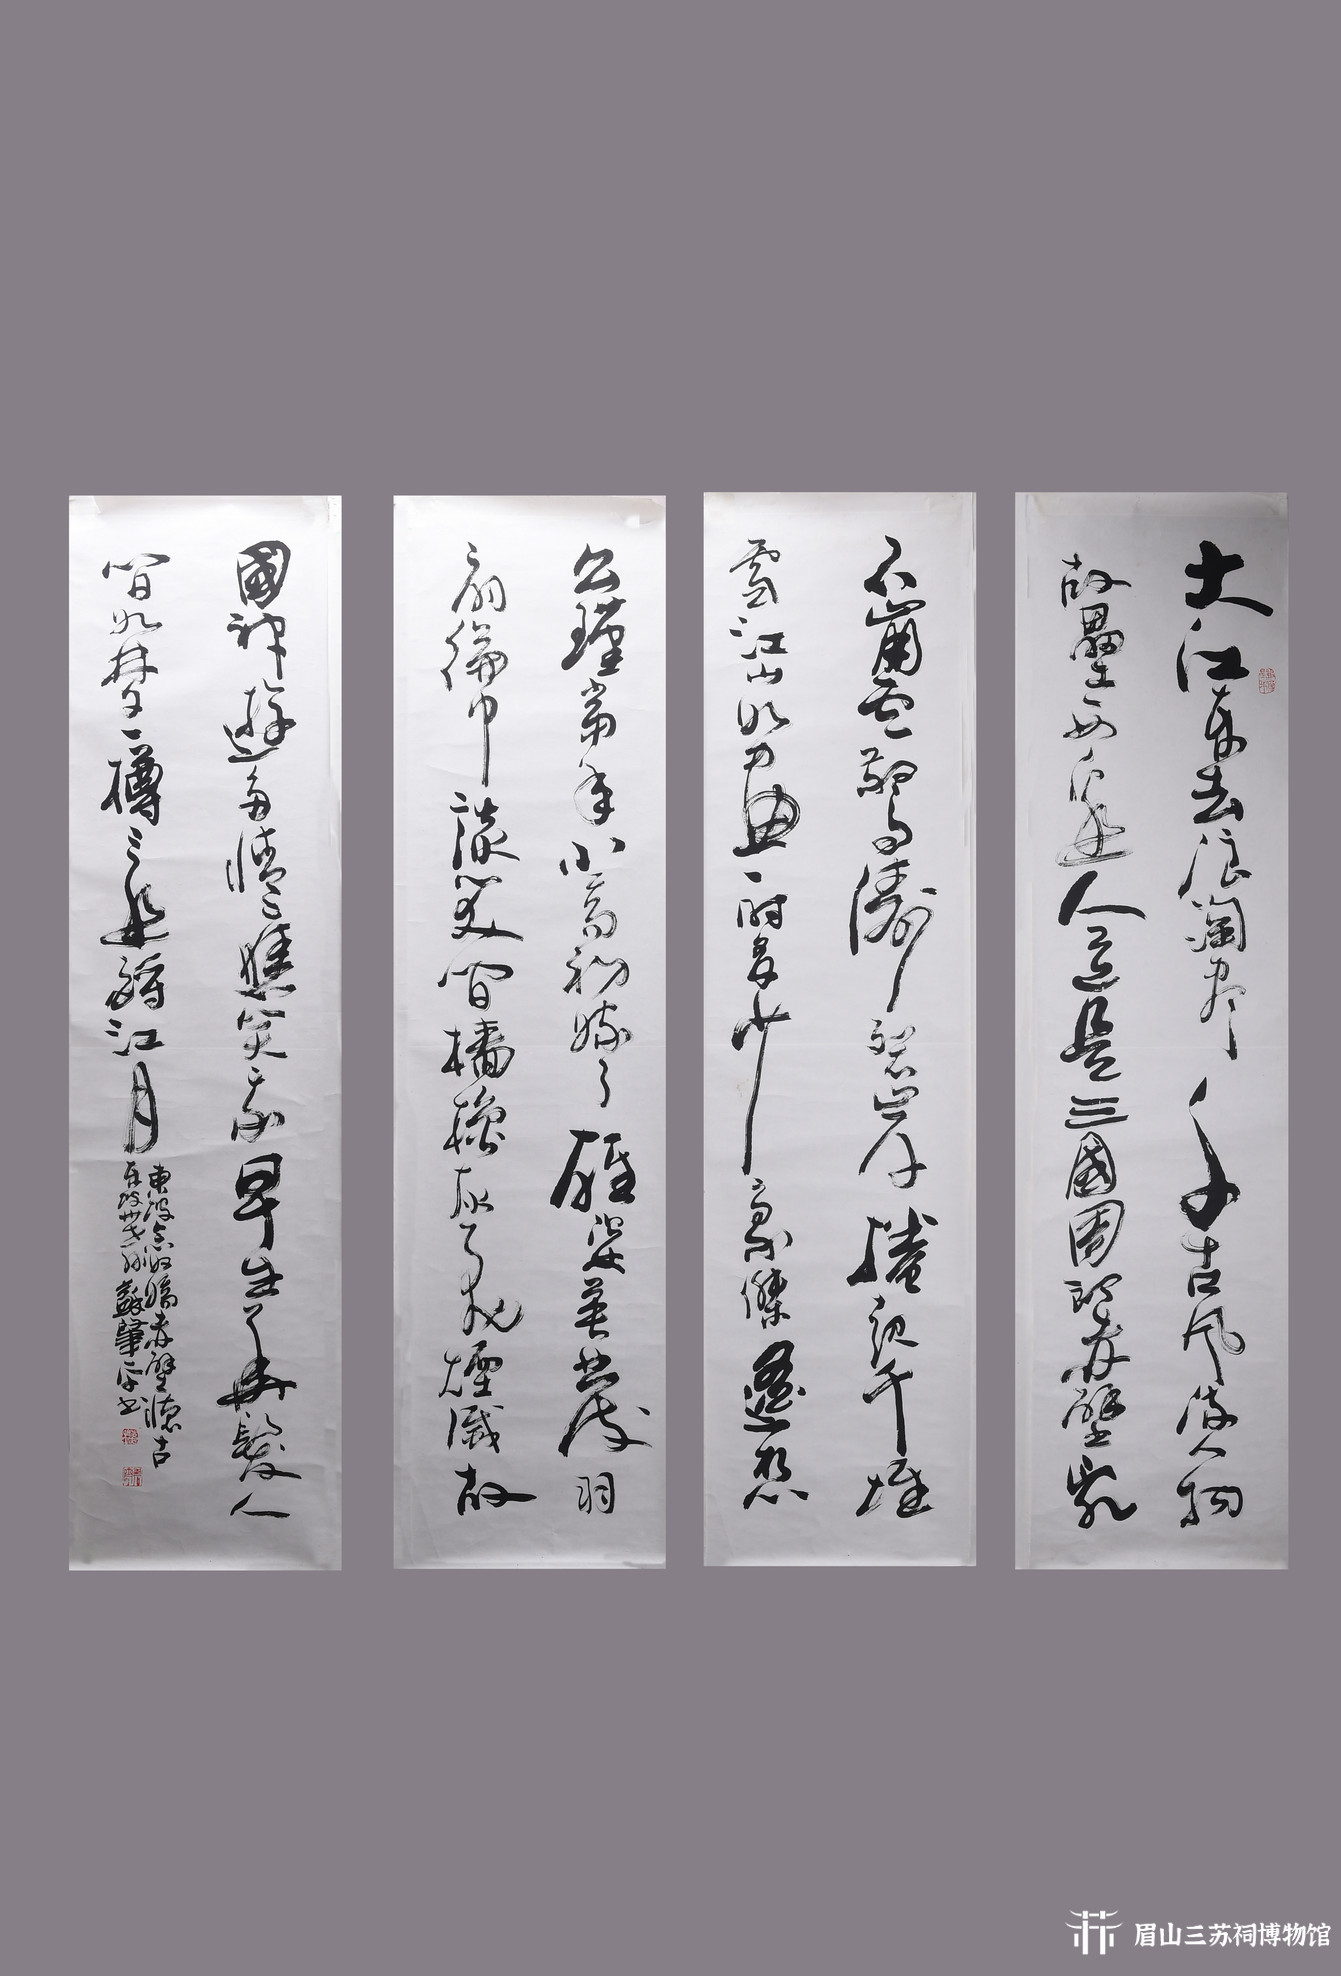 大江東去浪淘盡千古風流人物
故壘西邊人道是三國周郎赤壁亂
石崩雲驚濤裂岸捲起千堆
雪江山如畫一時多少豪傑遙想
公瑾當年小喬初嫁了雄姿英發羽
扇綸巾談笑間檣櫓灰飛煙滅故
國神遊多情應笑我早生華髮人
間如夢一樽還酹江月
東坡念奴嬌赤壁懷古
東坡卅世孫蘇肇平書
眉山三苏祠博物馆